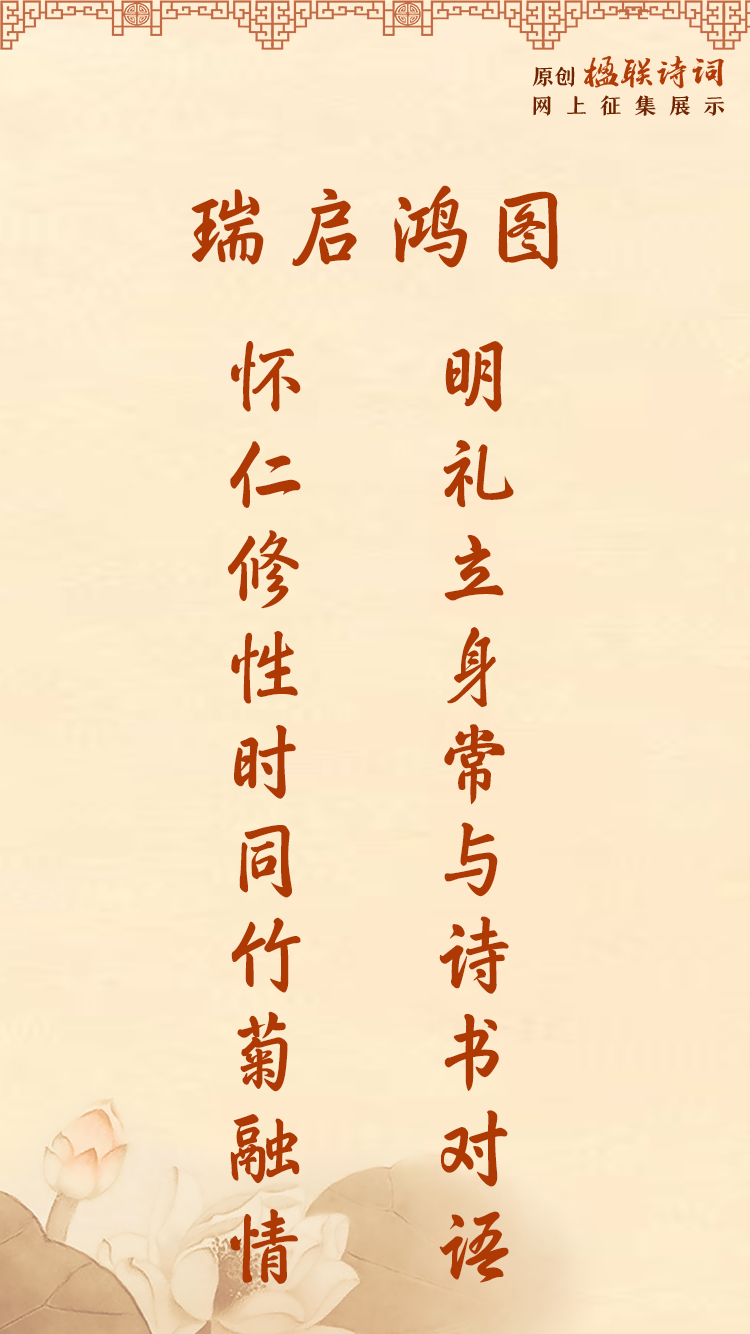 原创 楹联诗词
网上征集展示
瑞启鸿图
明礼立身常与诗书对语
怀仁修性时同竹菊融情